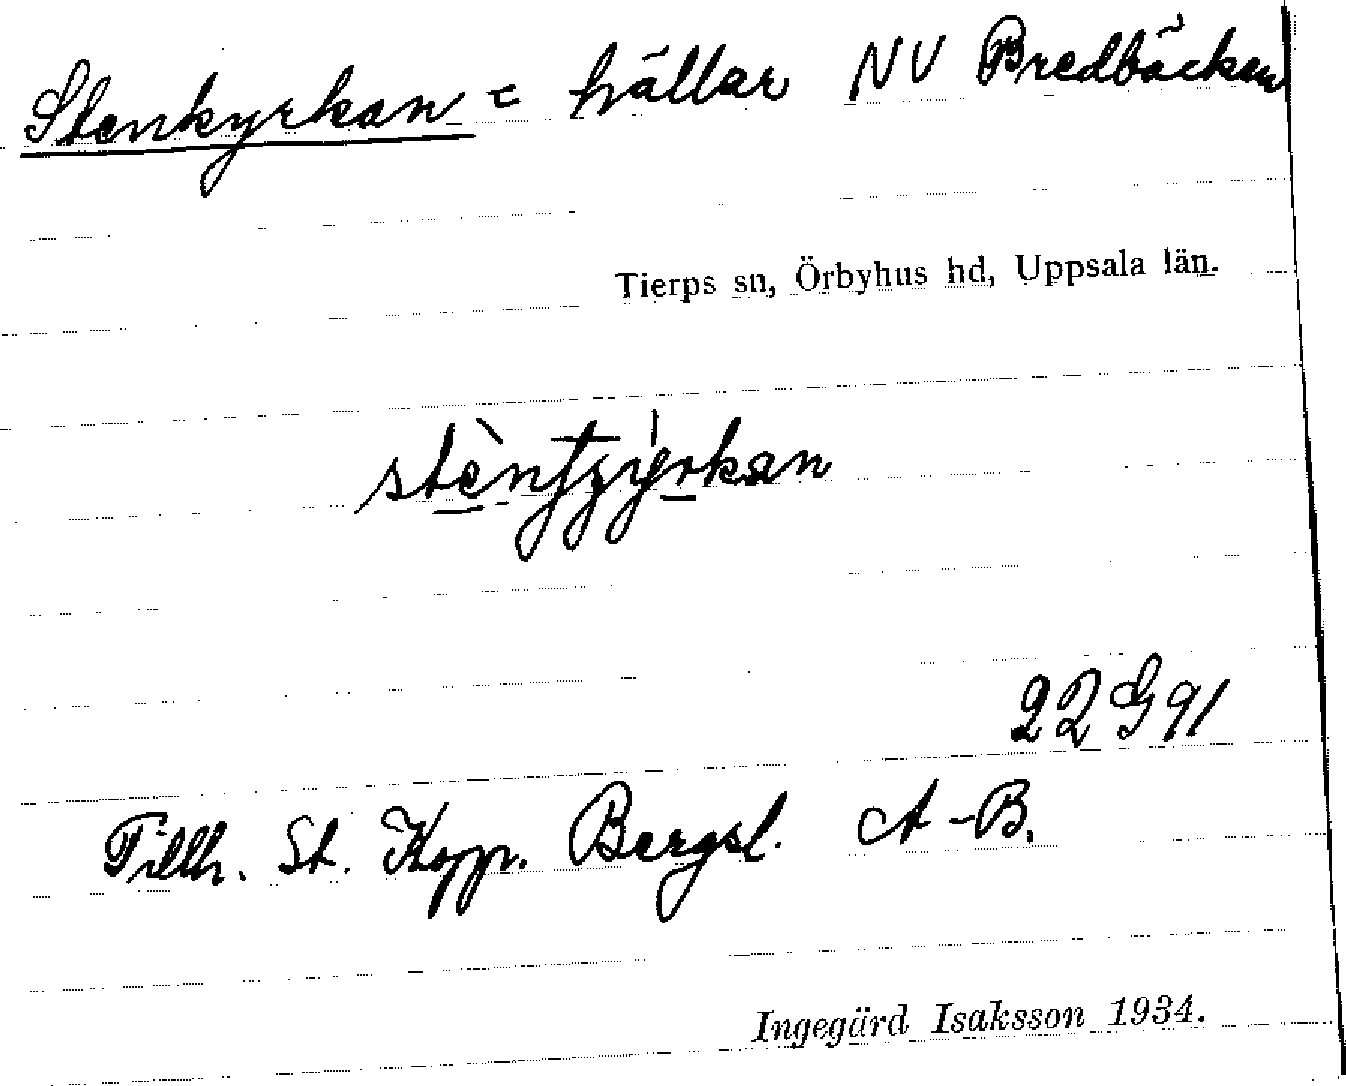 Stenkyrkan = hällar NV Bredbäcken
Tierps sn, Örbyhus hd, Uppsala län.
22 G 91
Tillh. St. Kopp. Bergsl. A-B.
Ingegärd Isaksson 1934.